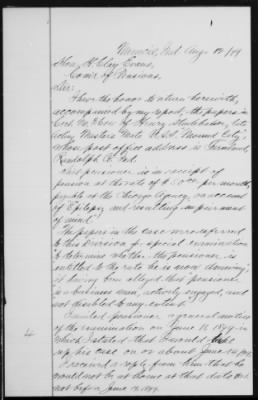 Muncie, Ind. Aug. 12/99
Hon. H. Clay Evans,
Com'r of Pensions,
Sir:
I have the honor to return herewith,
accompanied by my report, the papers in
Cert. No. of Henry late
Acting Masters Mate U.S.S. "Mound City,"
whose post office address is Farmland,
Randolph Co. Ind.
This pensioner is in receipt of
pension at the rate of per month,
payable at the Chicago Agency, on account
of "Epilepsy and resulting impairment
of mind."
The papers in the case were referred
to this Division for special examination
"to determine whether the pensioner is
entitled to the rate he is now drawing,"
it having been alleged that pensioner
is a business man, actively engaged, and
not disabled to any extent.
I mailed pensioner a general notice
of the examination on June 11, 1899, in
which I stated that I would take
up his case on or about June
I received a reply from him that he
would not be at home at that date
not before June 1899.
4